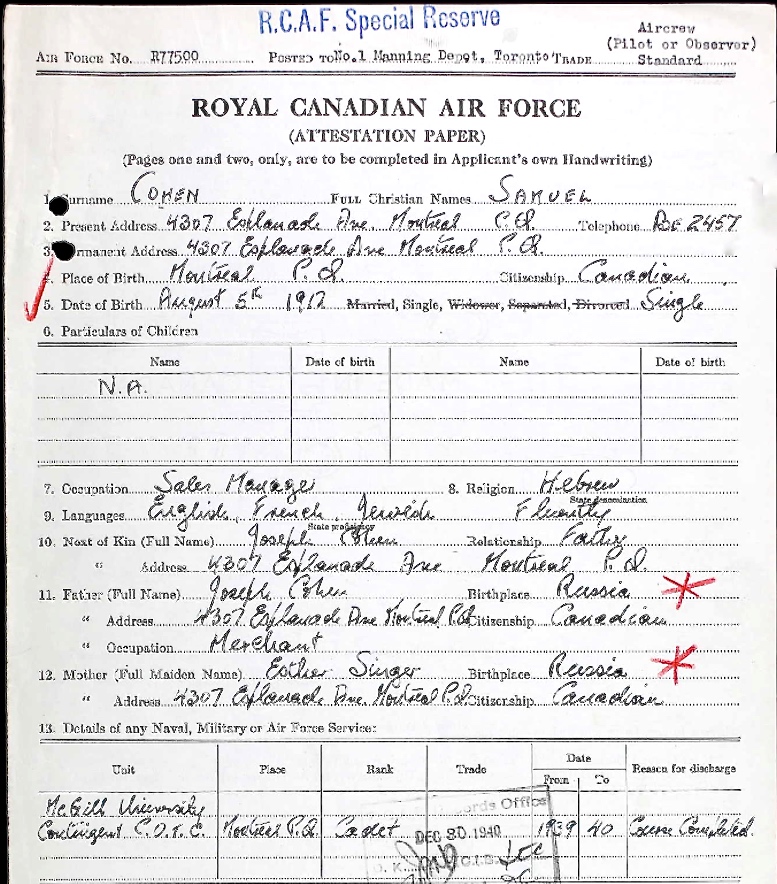 R.C.A.F. Special Reserve
Aircrew
(Pilot or Observer)
AIR FORCE No. R77500 POSTED TO No.1 Manning Depot, Toronto TRADE Standard
ROYAL CANADIAN AIR FORCE
(ATTESTATION PAPER)
(Pages one and two, only, are to be completed in Applicant's own Handwriting)
1. Surname COHEN FULL Christian Names SAMUEL
2. Present Address 4307 Esplanade Ave. Montreal P.Q. Telephone BE 2457
3. Permanent Address 4307 Esplanade Ave Montreal P.Q.
4. Place of Birth Montreal P.Q. Citizenship Canadian
5. Date of Birth August 5th 1912 Married, Single, Widower, Separated, Divorced Single
6. Particulars of Children
Name Date of birth Name Date of birth
N.A.
7. Occupation Sales Manager 8. Religion Hebrew
State denomination
9. Languages English, French, Jewish Fluently
State proficiency
10. Next of Kin (Full Name) Joseph Cohen Relationship Father
" Address 4307 Esplanade Ave Montreal P.Q.
11. Father (Full Name) Joseph Cohen Birthplace Russia
" Address 4307 Esplanade Ave Montreal P.Q. Citizenship Canadian
" Occupation Merchant
12. Mother (Full Maiden Name) Esther Singer Birthplace Russia
" Address 4307 Esplanade Ave. Montreal P.Q. Citizenship Canadian
13. Details of any Naval, Military or Air Force Service:
Unit Place Rank Trade Date Reason for discharge
From To
McGill University
Contingent C.O.T.C. Montreal P.Q. Cadet 1939 40 Course Completed.
Records Office
DEC 30 1940